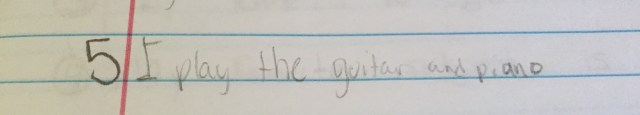 5 I play the guitar and piano